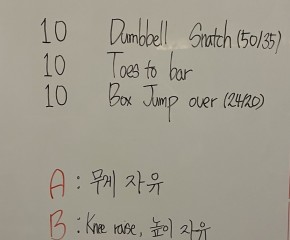 10 Dumbbell Snatch (50/35)
10 Toes to bar
10 Box Jump over (24/20)
A : 무게 자유
B : Knee raise, 높이 자유